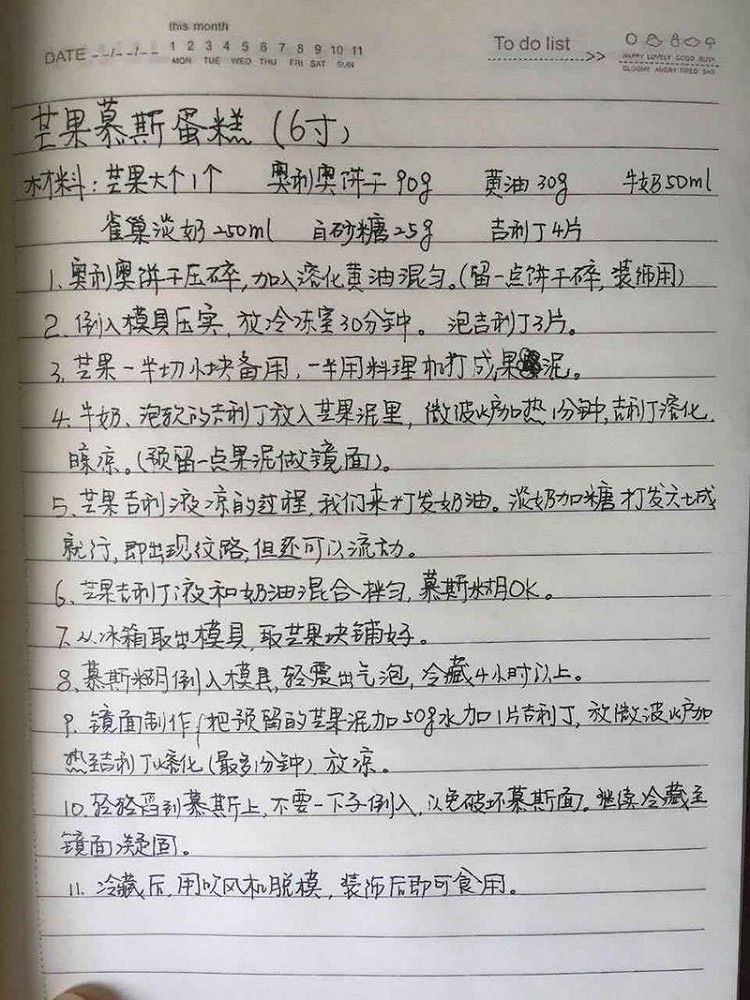 this month
DATE --/--/-- 1 2 3 4 5 6 7 8 9 10 11
MON TUE WED THU FRI SAT SUN
To do list >>
HAPPY LOVELY GOOD BUSY
GLOOMY ANGRY TIRED SAD
芒果慕斯蛋糕(6寸)
材料:芒果大个1个 奥利奥饼干90g 黄油30g 牛奶50ml
雀巢淡奶250ml 白砂糖25g 吉利丁4片
1.奥利奥饼干压碎,加入溶化黄油混匀。(留一点饼干碎,装饰用)
2.倒入模具压实,放冷冻室30分钟。泡吉利丁3片。
3.芒果一半切小块备用,一半用料理机打成果泥。
4.牛奶、泡软的吉利丁放入芒果泥里,微波炉加热1分钟,吉利丁溶化.
晾凉。(预留一点果泥做镜面)。
5、芒果吉利液凉的过程,我们来打发奶油。淡奶加糖打发六七成
就行,即出现纹路,但还可以流动。
6、芒果吉利丁液和奶油混合拌匀,慕斯糊OK。
7.从冰箱取出模具,取芒果块铺好。
8、慕斯糊倒入模具,轻震出气泡,冷藏4小时以上。
9.镜面制作,把预留的芒果泥加50g水加1片吉利丁,放微波炉加
热至吉利丁熔化(最多1分钟)放凉。
10.轻轻舀到慕斯上,不要一下子倒入,以免破坏慕斯面。继续冷藏至
镜面凝固。
11.冷藏后,用吹风机脱模,装饰后即可食用。